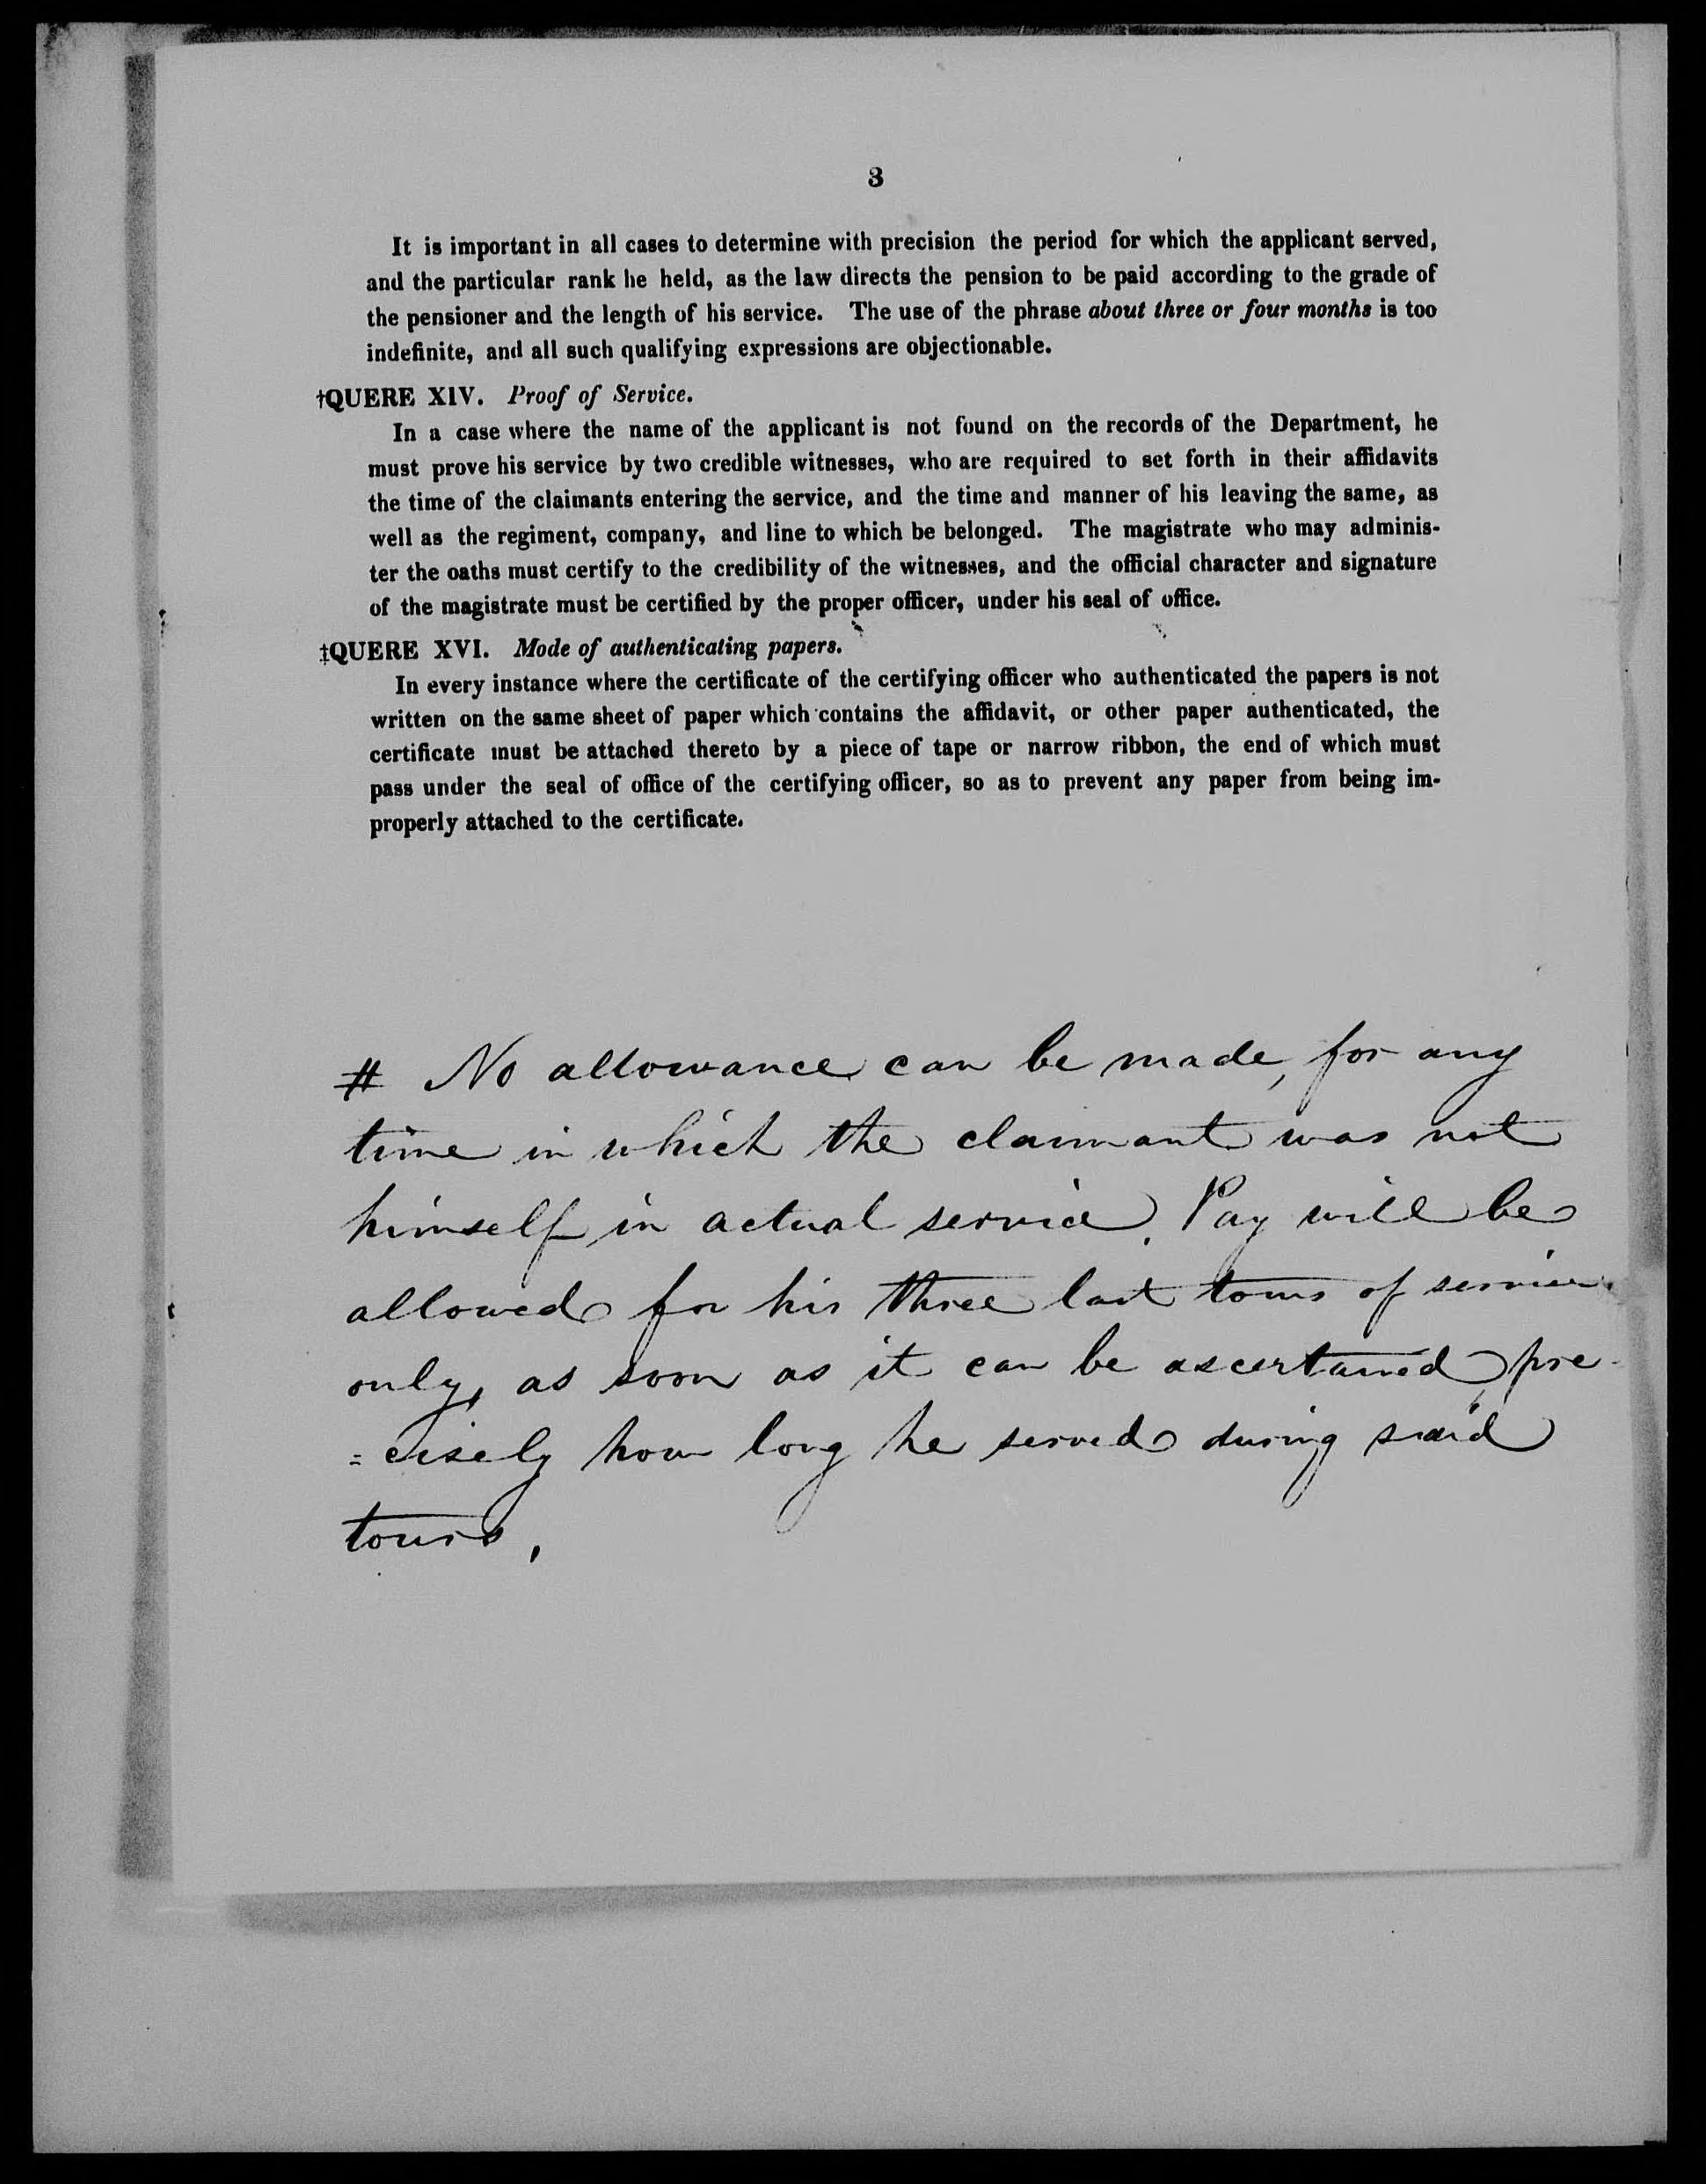 3
It is important in all cases to determine with precision the period for which the applicant served,
and the particular rank he held, as the law directs the pension to be paid according to the grade of
the pensioner and the length of his service. The use of the phrase about three or four months is too
indefinite, and all such qualifying expressions are objectionable.
†QUERE XIV. Proof of Service.
In a case where the name of the applicant is not found on the records of the Department, he
must prove his service by two credible witnesses, who are required to set forth in their affidavits
the time of the claimants entering the service, and the time and manner of his leaving the same, as
well as the regiment, company, and line to which be belonged. The magistrate who may adminis-
ter the oaths must certify to the credibility of the witnesses, and the official character and signature
of the magistrate must be certified by the proper officer, under his seal of office.
‡QUERE XVI. Mode of authenticating papers.
In every instance where the certificate of the certifying officer who authenticated the papers is not
written on the same sheet of paper which contains the affidavit, or other paper authenticated, the
certificate must be attached thereto by a piece of tape or narrow ribbon, the end of which must
pass under the seal of office of the certifying officer, so as to prevent any paper from being im-
properly attached to the certificate.
# No allowance can be made, for any
time in which the claimant was not
himself in actual service. Pay will be
allowed for his three last tours of service
only, as soon as it can be ascertained, pre-
=cisely how long he served during said
tours.